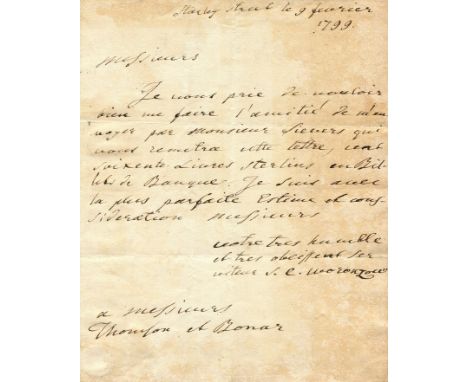 Harley Street le 9 fevrier
1799.
Messieurs
Je vous prie de vouloir
bien me faire l'amitié de m'en
voyer par Monsieur Sievers qui
vous remetra cette lettre, cent
soixente Livres Sterlins en Bil-
lets de Banque. Je suis avec
la plus parfaite Estime et con-
sideration Messieurs
votre tres humble
et tres obeissent ser
viteur S. C. Woronzow
a Messieurs
Thomson et Bonar